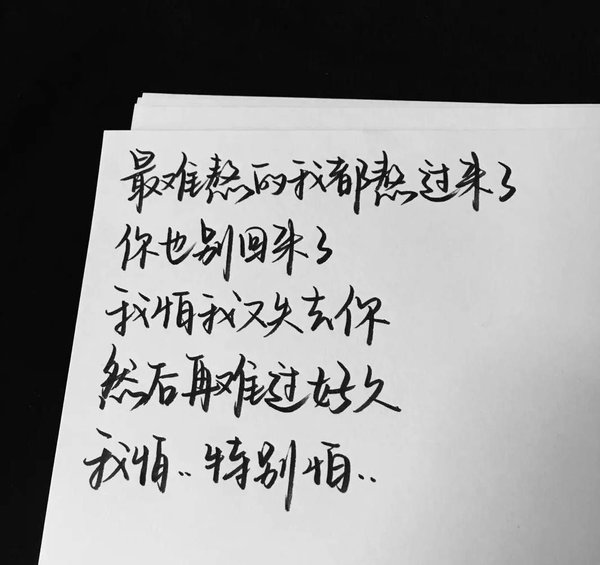 最难熬的我都熬过来了
你也别回来了
我怕我又失去你
然后再难过好久
我怕..特别怕..